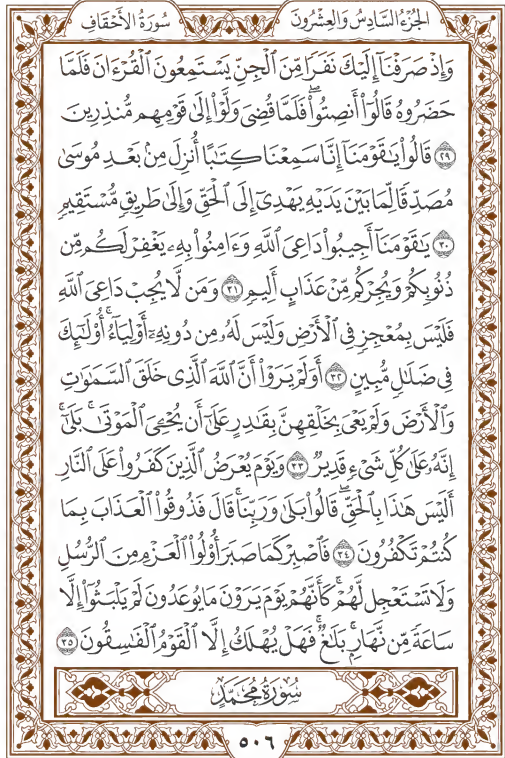 الجُزْءُ السَّادِسُ وَالعِشْرُونَ سُورَةُ الأَحْقَافِ
وَإِذْ صَرَفْنَآ إِلَيْكَ نَفَرًا مِّنَ ٱلْجِنِّ يَسْتَمِعُونَ ٱلْقُرْءَانَ فَلَمَّا
حَضَرُوهُ قَالُوٓا۟ أَنصِتُوا۟ۖ فَلَمَّا قُضِىَ وَلَّوْا۟ إِلَىٰ قَوْمِهِم مُّنذِرِينَ
٢٩ قَالُوا۟ يَٰقَوْمَنَآ إِنَّا سَمِعْنَا كِتَٰبًا أُنزِلَ مِنۢ بَعْدِ مُوسَىٰ
مُصَدِّقًا لِّمَا بَيْنَ يَدَيْهِ يَهْدِىٓ إِلَى ٱلْحَقِّ وَإِلَىٰ طَرِيقٍ مُّسْتَقِيمٍ
٣٠ يَٰقَوْمَنَآ أَجِيبُوا۟ دَاعِىَ ٱللَّهِ وَءَامِنُوا۟ بِهِۦ يَغْفِرْ لَكُم مِّن
ذُنُوبِكُمْ وَيُجِرْكُم مِّنْ عَذَابٍ أَلِيمٍ ٣١ وَمَن لَّا يُجِبْ دَاعِىَ ٱللَّهِ
فَلَيْسَ بِمُعْجِزٍ فِى ٱلْأَرْضِ وَلَيْسَ لَهُۥ مِن دُونِهِۦٓ أَوْلِيَآءُۚ أُو۟لَٰٓئِكَ
فِى ضَلَٰلٍ مُّبِينٍ ٣٢ أَوَلَمْ يَرَوْا۟ أَنَّ ٱللَّهَ ٱلَّذِى خَلَقَ ٱلسَّمَٰوَٰتِ
وَٱلْأَرْضَ وَلَمْ يَعْىَ بِخَلْقِهِنَّ بِقَٰدِرٍ عَلَىٰٓ أَن يُحْـِۧىَ ٱلْمَوْتَىٰۚ بَلَىٰٓۚ
إِنَّهُۥ عَلَىٰ كُلِّ شَىْءٍ قَدِيرٌ ٣٣ وَيَوْمَ يُعْرَضُ ٱلَّذِينَ كَفَرُوا۟ عَلَى ٱلنَّارِ
أَلَيْسَ هَٰذَا بِٱلْحَقِّۖ قَالُوا۟ بَلَىٰ وَرَبِّنَاۚ قَالَ فَذُوقُوا۟ ٱلْعَذَابَ بِمَا
كُنتُمْ تَكْفُرُونَ ٣٤ فَٱصْبِرْ كَمَا صَبَرَ أُو۟لُوا۟ ٱلْعَزْمِ مِنَ ٱلرُّسُلِ
وَلَا تَسْتَعْجِل لَّهُمْۚ كَأَنَّهُمْ يَوْمَ يَرَوْنَ مَا يُوعَدُونَ لَمْ يَلْبَثُوٓا۟ إِلَّا
سَاعَةً مِّن نَّهَارٍۭۚ بَلَٰغٌۚ فَهَلْ يُهْلَكُ إِلَّا ٱلْقَوْمُ ٱلْفَٰسِقُونَ ٣٥
سُورَةُ مُحَمَّدٍ
٥٠٦